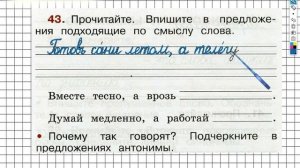 43. Прочитайте. Впишите в предложе-
ния подходящие по смыслу слова.
Готовь сани летом, а телегу
Вместе тесно, а врозь
Думай медленно, а работай
• Почему так говорят? Подчеркните в
предложениях антонимы.